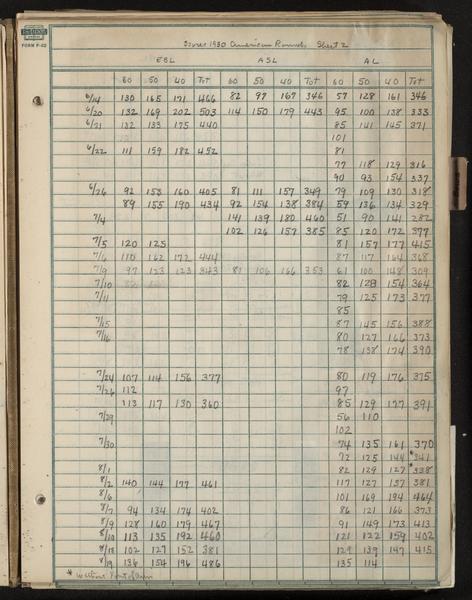 FORM P-50
Scores 1930 American Rounds Sheet 2
EBL ASL AL
60 50 40 Tot 60 50 40 Tot 60 50 40 Tot
6/14 130 165 171 466 82 97 167 346 57 128 161 346
6/20 132 169 202 503 114 150 179 443 95 100 138 333
6/21 132 133 175 440 85 141 145 371
101
6/22 111 159 182 452 81
77 118 129 316
90 93 154 337
6/26 92 153 160 405 81 111 157 349 79 109 130 318
89 155 190 434 92 154 138 384 59 136 134 329
7/4 141 139 180 460 51 90 141 282
102 126 157 385 85 120 172 377
7/5 120 125 81 157 177 415
7/6 110 162 172 444 87 117 164 368
7/9 97 123 123 343 81 106 166 353 61 100 148 309
7/10 82 128 154 364
7/11 79 125 173 377
85
7/15 87 145 156 388
7/16 80 127 166 373
78 138 174 390
7/24 107 114 156 377 80 119 176 375
7/26 112 97
113 117 130 360 85 129 177 391
7/29 56 110
102
7/30 74 135 161 370
72 125 144 *341
8/1 82 129 127 *338
8/2 140 144 177 461 117 127 137 381
8/6 101 169 194 464
8/7 94 134 174 402 86 121 166 373
8/9 128 160 179 467 91 149 173 413
8/10 113 135 192 460 121 122 159 402
8/18 102 127 152 381 129 139 147 415
8/19 136 154 196 486 135 114